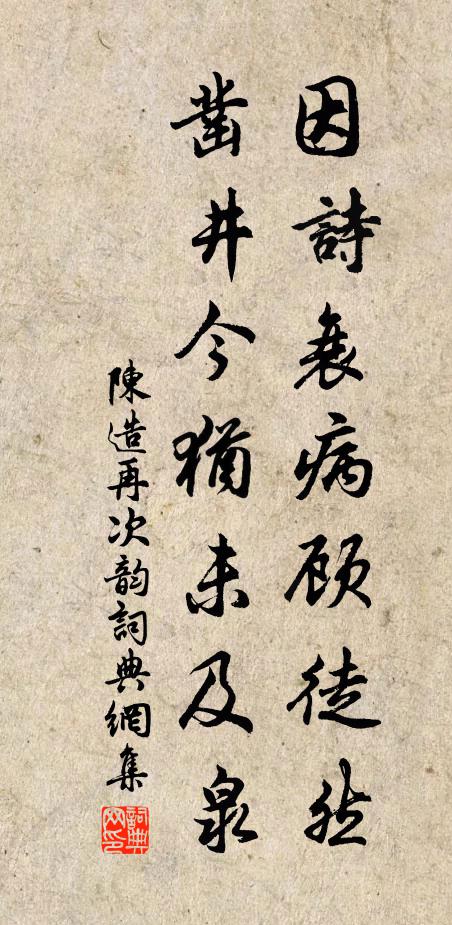 因詩衰病顧徒然
鑿井今猶未及泉
陳造再次韵詞典網集
詞典网印